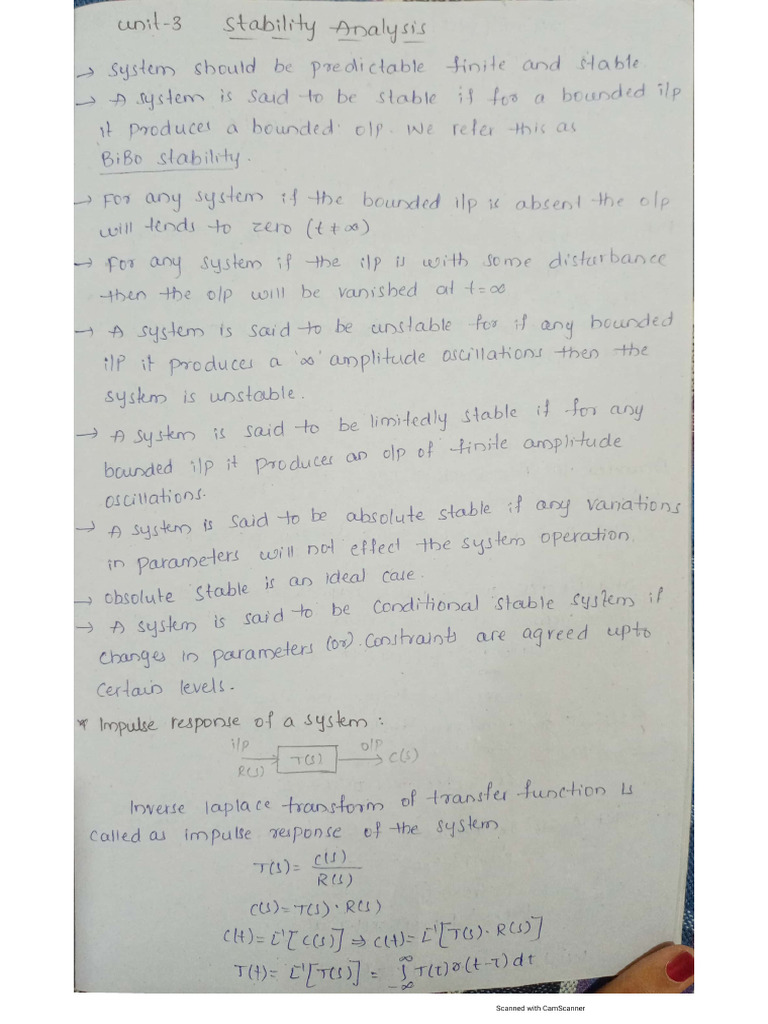 unit-3 Stability Analysis
→ System should be predictable finite and stable
→ A system is said to be stable if for a bounded i/p
it produces a bounded o/p. We refer this as
BiBo stability.
→ For any system if the bounded i/p is absent the o/p
will tends to zero (t + ∞)
→ For any system if the i/p is with some disturbance
then the o/p will be vanished at t=∞
→ A system is said to be unstable for if any bounded
i/p it produces a '∞' amplitude oscillations then the
system is unstable.
→ A system is said to be limitedly stable if for any
bounded i/p it produces an o/p of finite amplitude
oscillations.
→ A system is said to be absolute stable if any variations
in parameters will not effect the system operation.
→ Obsolute stable is an ideal case.
→ A system is said to be conditional stable system if
changes in parameters (or) constraints are agreed upto
certain levels.
* Impulse response of a system :
i/p o/p
R(s) T(s) C(s)
Inverse laplace transform of transfer function is
called as impulse response of the system
T(s) = C(s)/R(s)
C(s) = T(s) · R(s)
c(t) = L⁻¹[C(s)] ⇒ c(t) = L⁻¹[T(s) · R(s)]
T(t) = L⁻¹[T(s)] = ∫_{-∞}^{∞} T(τ) r(t-τ) dt
Scanned with CamScanner